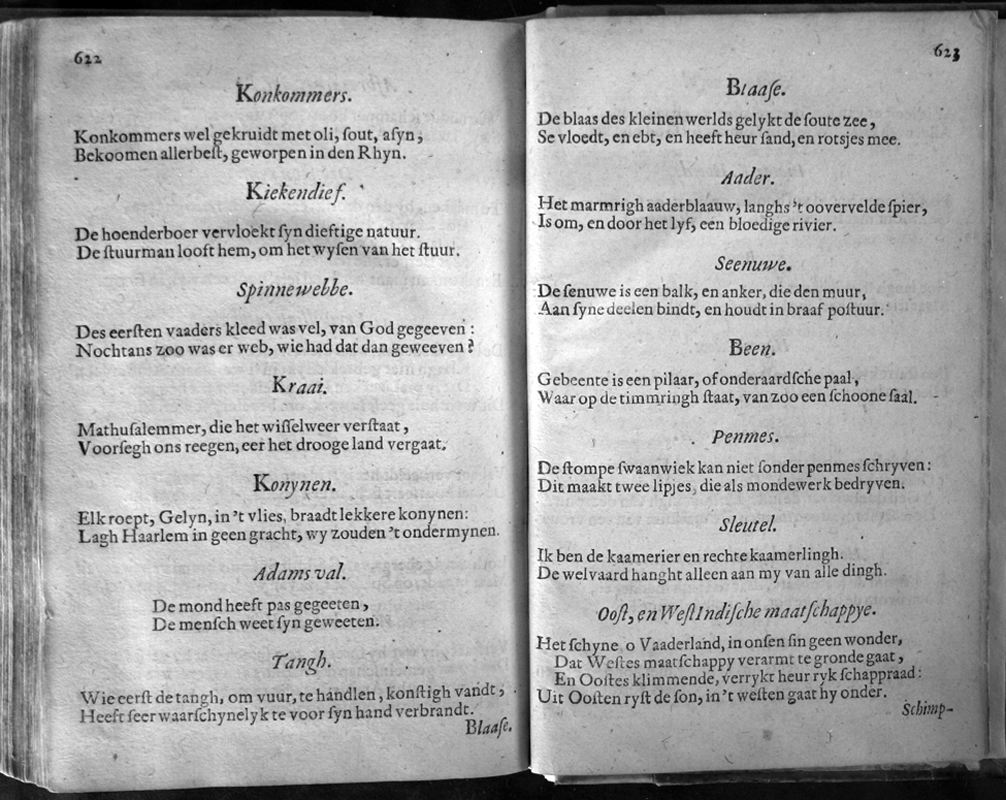 622
Konkommers.
Konkommers wel gekruidt met oli, ſout, aſyn,
Bekoomen allerbeſt, geworpen in den Rhyn.
Kiekendief.
De hoenderboer vervloekt ſyn dieftige natuur.
De ſtuurman looft hem, om het wyſen van het ſtuur.
Spinnewebbe.
Des eerſten vaaders kleed was vel, van God gegeeven:
Nochtans zoo was er web, wie had dat dan geweeven?
Kraai.
Mathuſalemmer, die het wiſſelweer verſtaat,
Voorſegh ons reegen, eer het drooge land vergaat.
Konynen.
Elk roept, Gelyn, in 't vlies, braadt lekkere konynen:
Lagh Haarlem in geen gracht, wy zouden 't ondermynen.
Adams val.
De mond heeft pas gegeeten,
De menſch weet ſyn geweeten.
Tangh.
Wie eerſt de tangh, om vuur, te handlen, konſtigh vandt,
Heeft ſeer waarſchynelyk te voor ſyn hand verbrandt.
Blaaſe.
623
Blaaſe.
De blaas des kleinen werlds gelykt de ſoute zee,
Se vloedt, en ebt, en heeft heur ſand, en rotsjes mee.
Aader.
Het marmrigh aaderblaauw, langhs 't oovervelde ſpier,
Is om, en door het lyf, een bloedige rivier.
Seenuwe.
De ſenuwe is een balk, en anker, die den muur,
Aan ſyne deelen bindt, en houdt in braaf poſtuur.
Been.
Gebeente is een pilaar, of onderaardſche paal,
Waar op de timmringh ſtaat, van zoo een ſchoone ſaal.
Penmes.
De ſtompe ſwaanwiek kan niet ſonder penmes ſchryven:
Dit maakt twee lipjes, die als mondewerk bedryven.
Sleutel.
Ik ben de kaamerier en rechte kaamerlingh.
De welvaard hanght alleen aan my van alle dingh.
Ooſt, en WeſtIndiſche maatſchappye.
Het ſchyne o Vaaderland, in onſen ſin geen wonder,
Dat Weſtes maatſchappy verarmt te gronde gaat,
En Ooſtes klimmende, verrykt heur ryk ſchappraad:
Uit Ooſten ryſt de ſon, in 't weſten gaat hy onder.
Schimp-